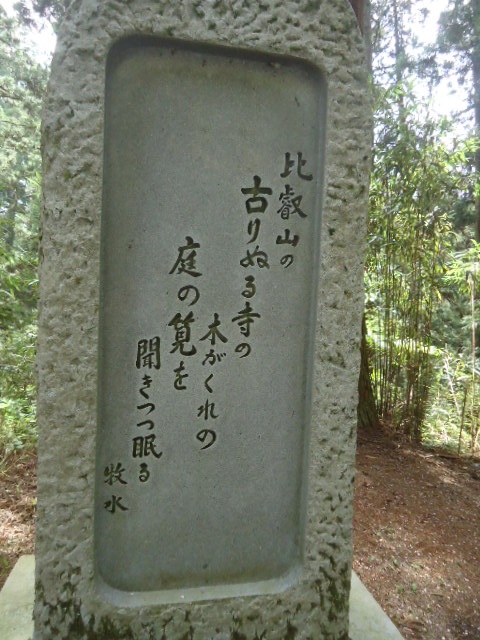 比叡山の
古りぬる寺の
木がくれの
庭の筧を
聞きつつ眠る
牧水